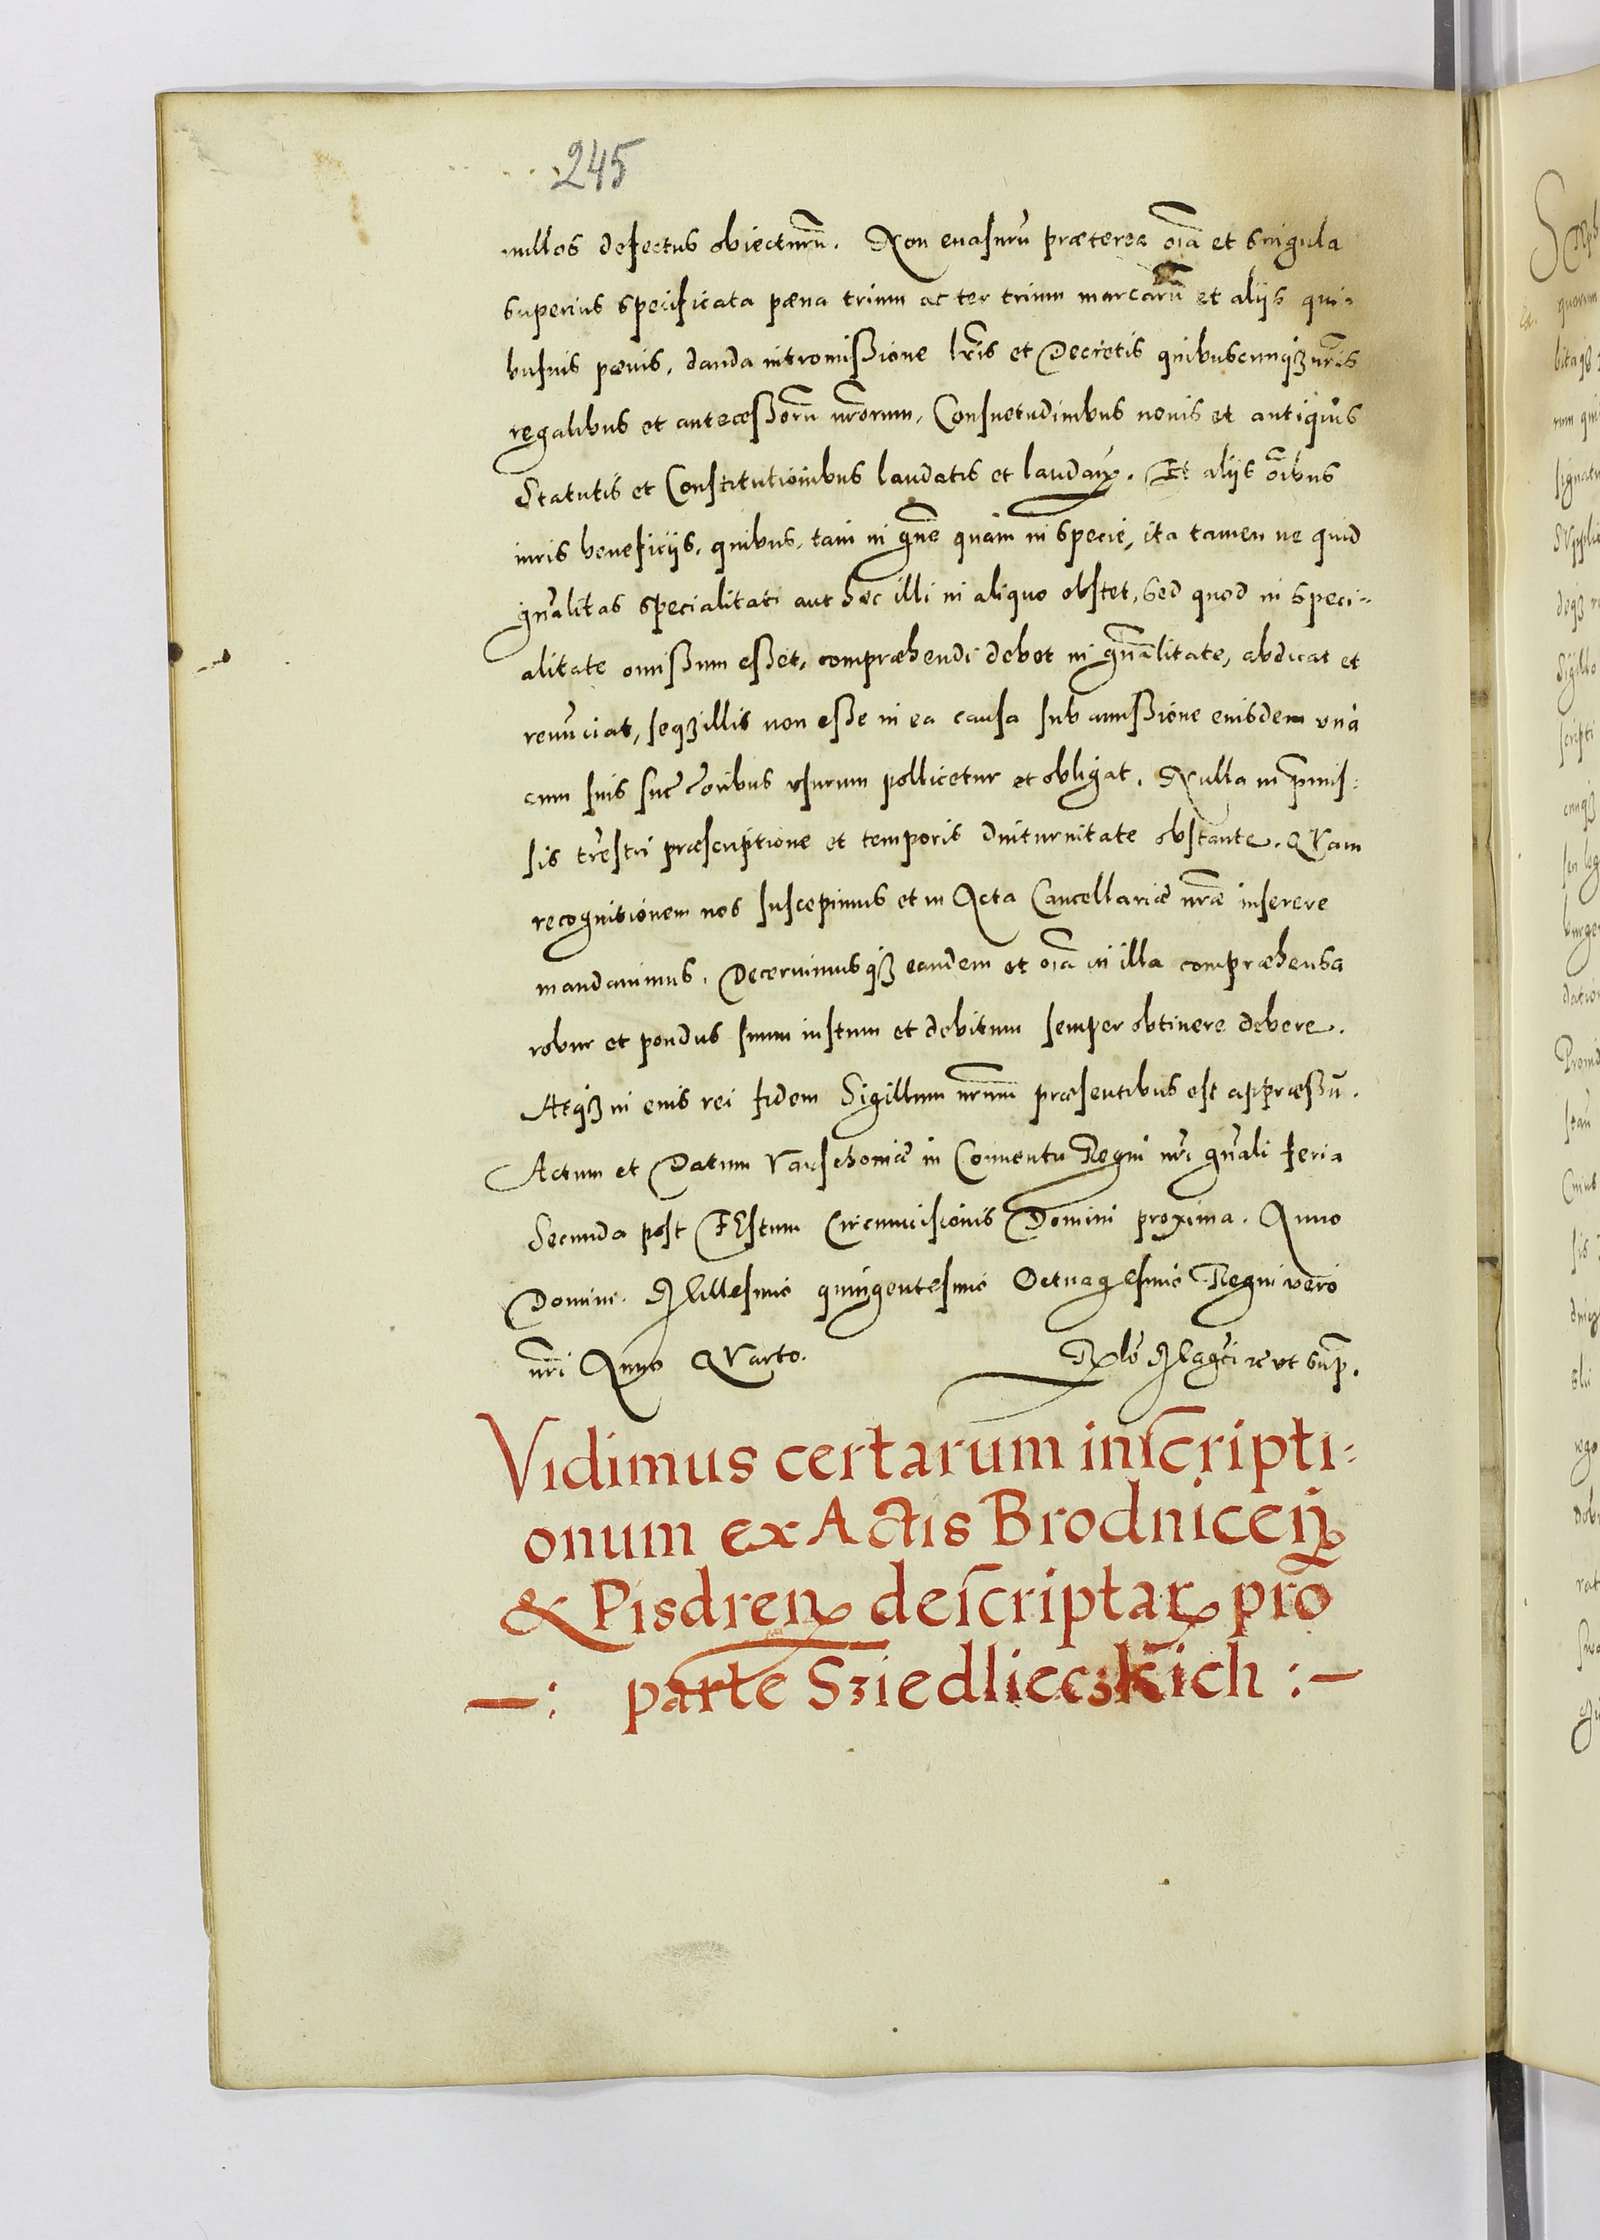 245
nullos defectus obiecturũ. Non euasurũ præterea oĩa et singula
superius specificata pæna trium ac ter trium marcarũ et aliis qui-
busuis pœnis, danda intromissione lr̃is et Decretis quibuscunqꝫ nr̃is
regalibus et antecessorũ nr̃orum, Consuetudinibus nouis et antiquis
Statutis et Constitutionibus laudatis et laudañ. Et aliis oĩbus
iuris beneficiis, quibus, tam in gñe quàm in specie, ita tamen ne quid
gñalitas specialitati aut hæc illi in aliquo obstet, sed quod in speci-
alitate omissum esset, compræhendi debet in gñalitate, abdicat et
renũciat, seqꝫ illis non esse in ea causa sub amissione eiusdem vnà
cum suis succ̃oribus vsurum pollicetur et obligat. Nulla in p̃mis-
sis tr̃estri præscriptione et temporis diuturnitate obstante. QVam
recognitionem nos suscepimus et in Acta Cancellariæ nr̃æ inserere
mandauimus. Decernimusqꝫ eandem et oĩa in illa compræhensa
robur et pondus suum iustum et debitum semper obtinere debere.
Atqꝫ in eius rei fidem Sigillum nr̃um præsentibus est appræssũ.
Actum et Datum Varschouiæ in Conuentu Regni nr̃i gñali feria
Secunda post FEstum Circumcisionis Domini proxima. Anno
Domini Millesimo quingentesimo Octuagesimo Regni vero
nr̃i Anno QVarto. Rẽlo Mag̃ci ꝛc vt sup̃.
Vidimus certarum inscripti-
onum ex Actis Brodniceñ
& Pisdreñ descriptar pro
-: parte Sziedlieczkich :-